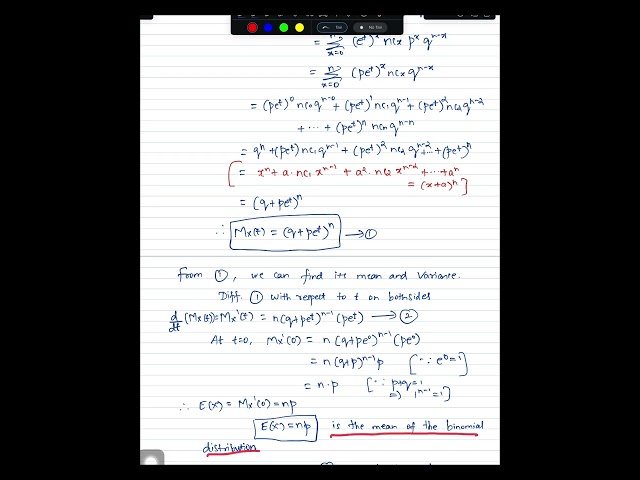 = Σ (e^t)^x nCx p^x q^(n-x)
x=0
= Σ (pe^t)^x nCx q^(n-x)
n
x=0
= (pe^t)^0 nC0 q^(n-0) + (pe^t)^1 nC1 q^(n-1) + (pe^t)^2 nC2 q^(n-2)
+ ... + (pe^t)^n nCn q^(n-n)
= q^n + (pe^t) nC1 q^(n-1) + (pe^t)^2 nC2 q^(n-2) + ... + (pe^t)^n
[ = x^n + a. nC1 x^(n-1) + a^2. nC2 x^(n-2) + ... + a^n
= (x+a)^n ]
= (q+pe^t)^n
∴ Mx(t) = (q+pe^t)^n → ①
From ①, we can find its mean and variance.
Diff. ① with respect to t on bothsides
d/dt (Mx(t)) = Mx'(t) = n(q+pe^t)^(n-1) (pe^t) → ②
At t=0, Mx'(0) = n(q+pe^0)^(n-1) (pe^0)
= n(q+p)^(n-1) p [∵ e^0=1]
= n.p [∵ p+q=1
=> 1^(n-1)=1]
∴ E(x) = Mx'(0) = np
E(x) = np is the mean of the binomial
distribution